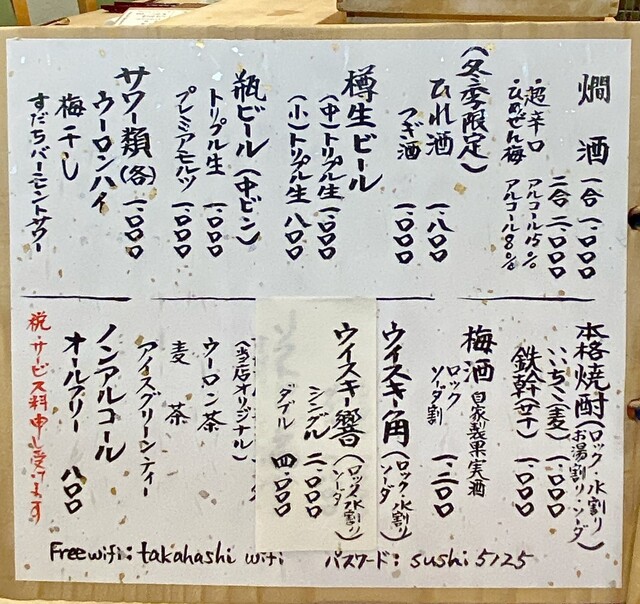 燗酒
一合 一、〇〇〇
二合 二、〇〇〇
・超辛口 アルコール15%
・ひめぜん梅 アルコール8%
(冬季限定)
ひれ酒 一、八〇〇
つぎ酒 一、〇〇〇
樽生ビール
(中)トリプル生 一、〇〇〇
(小)トリプル生 八〇〇
瓶ビール(中ビン)
トリプル生 一、〇〇〇
プレミアモルツ 一、〇〇〇
サワー類(各) 一、〇〇〇
ウーロンハイ
梅干し
すだちバーモントサワー
本格焼酎(ロック・水割り お湯割り・ソーダ)
いいちこ(麦) 一、〇〇〇
鉄幹(芋) 一、〇〇〇
梅酒 自家製果実酒
ロック
ソーダ割 一、二〇〇
ウイスキー角(ロック・水割り ソーダ)
ウイスキー響(ロック・水割り ソーダ)
シングル 二、〇〇〇
ダブル 四、〇〇〇
(当店オリジナル)
ウーロン茶
麦茶
アイスグリーンティー
ノンアルコール
オールフリー 八〇〇
税・サービス料申し受けます
Free wifi: takahashi wifi パスワード: sushi5125